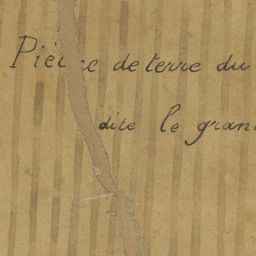 Pièce de terre du
dite le gran